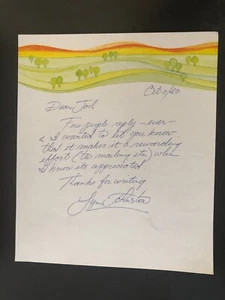 Dear Joel
Few people reply -ever-
& I wanted to let you know
that it makes it a rewarding
effort (the mailing etc) when
I know its appreciated
Thanks for writing
Lynn Johnston